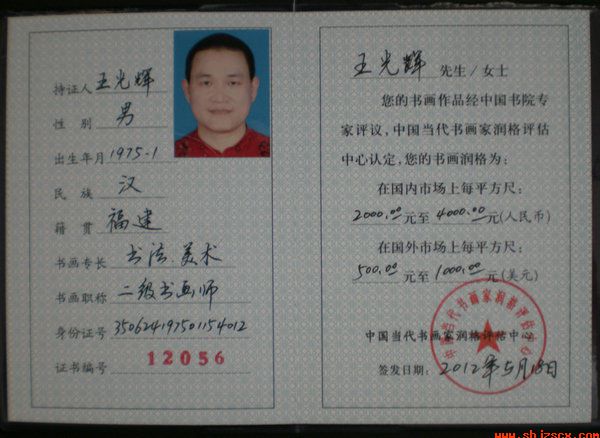 持证人 王光辉
性 别 男
出生年月 1975-1
民 族 汉
籍 贯 福建
书画专长 书法.美术
书画职称 二级书画师
身份证号 350624197501154012
证书编号 12056
王光辉 先生/女士
您的书画作品经中国书院专
家评议，中国当代书画家润格评估
中心认定，您的书画润格为：
在国内市场上每平方尺：
2000.00元至4000.00元(人民币)
在国外市场上每平方尺：
500.00元至1000.00元(美元)
中国当代书画家润格评估中心
中国当代书画家润格评估中心
签发日期：2012年5月18日
www.shjzscx.com